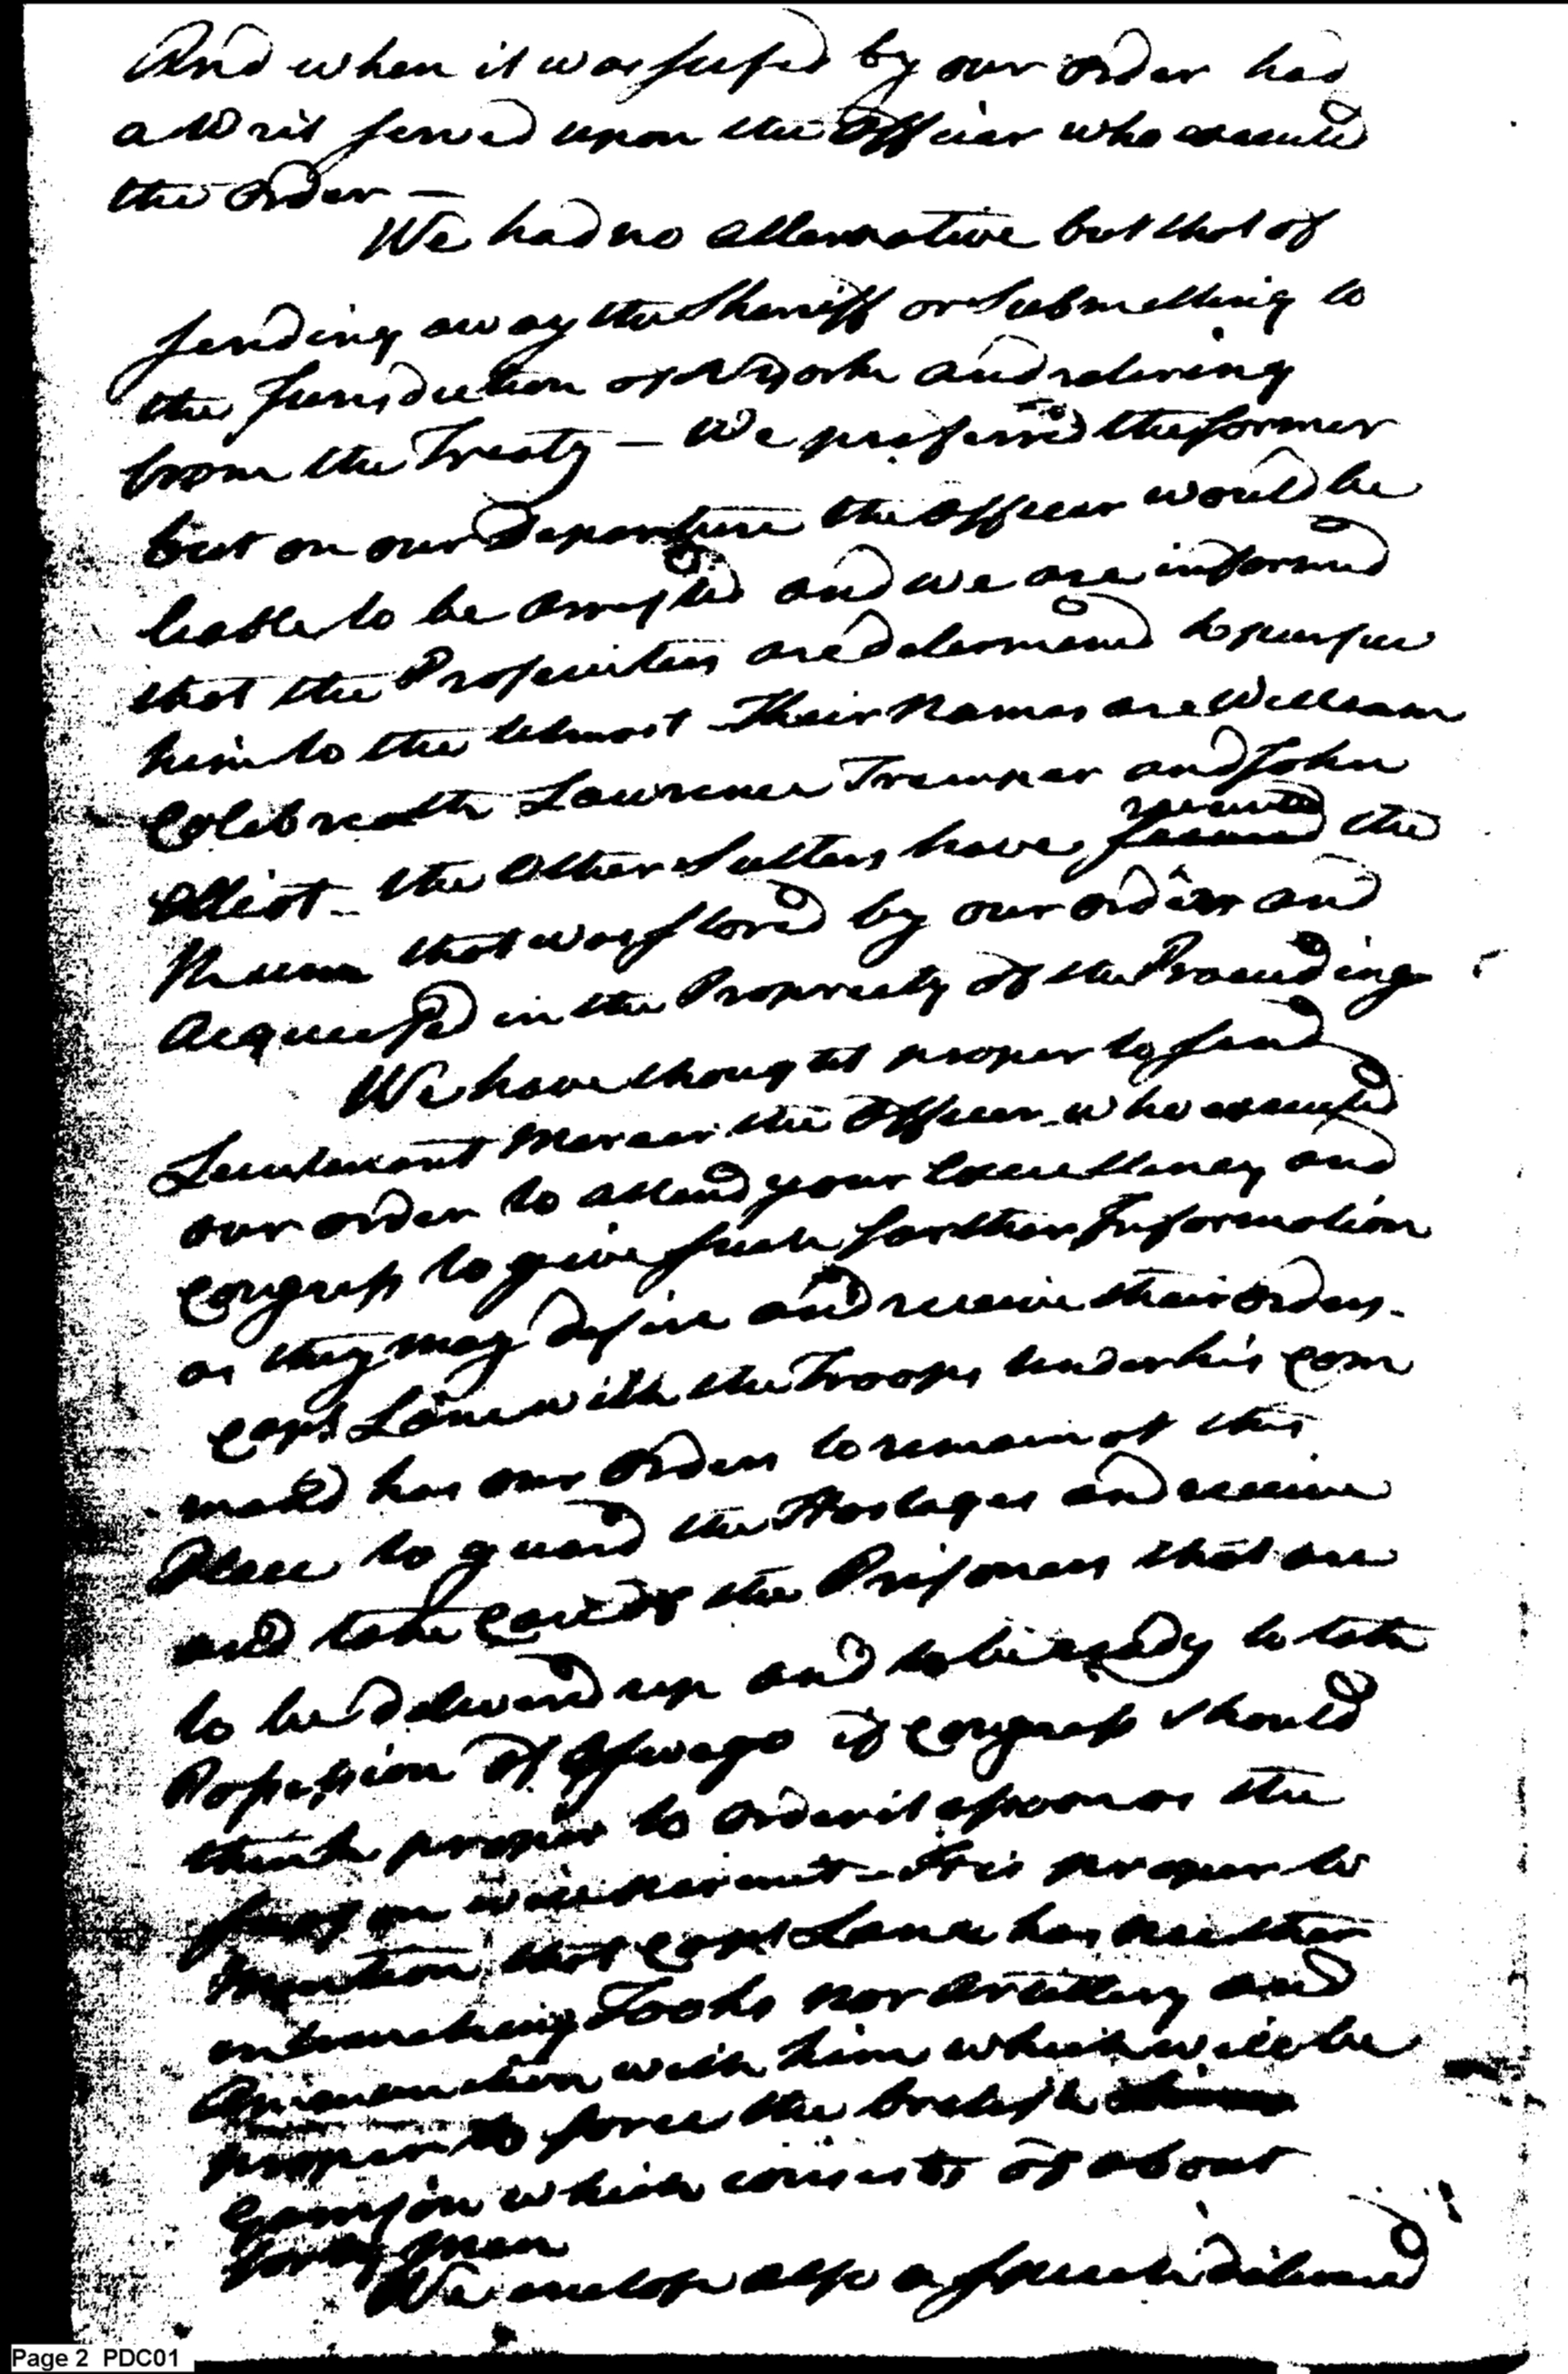 And when it was seised by our order had
a Writ served upon the Officer who executed
the order —
We had no alternative but that of
sending away the Sheriff or Submitting to
the Jurisdiction of NYork and retiring
from the Treaty — We preferred the former
but on our Departure the Officer would be
liable to be arrested and we are informed
that the Prosecutors are determined to pursue
him to the utmost Their Names are William
Colebreath Lawrence Tremper and John
Elliot - the Other Sutlers have received the
Rum that was stored by our orders and
Acquiesced in the Propriety of the Proceeding
We have thought proper to send
Lieutenant Mercer the Officer who executed
our order to attend your Excellency and
Congress to give such farther Information
as they may desire and receive their orders.
Capt Lane with the Troops under his Com
mand has our Orders to remain at this
Place to guard the Hostages and receive
and take Care of the Prisoners that are
to be delivered up and to be ready to take
Possession of Oswego if Congress should
think proper to order it as soon as the
season will permit - It is proper to
Mention that Capt Lane has neither
entrenching Tools nor Artillery and
Ammunition with him which will be
proper to force the british
Garrison which consists of about
forty Men
We enclose also a speech delivered
Page 2 PDC01